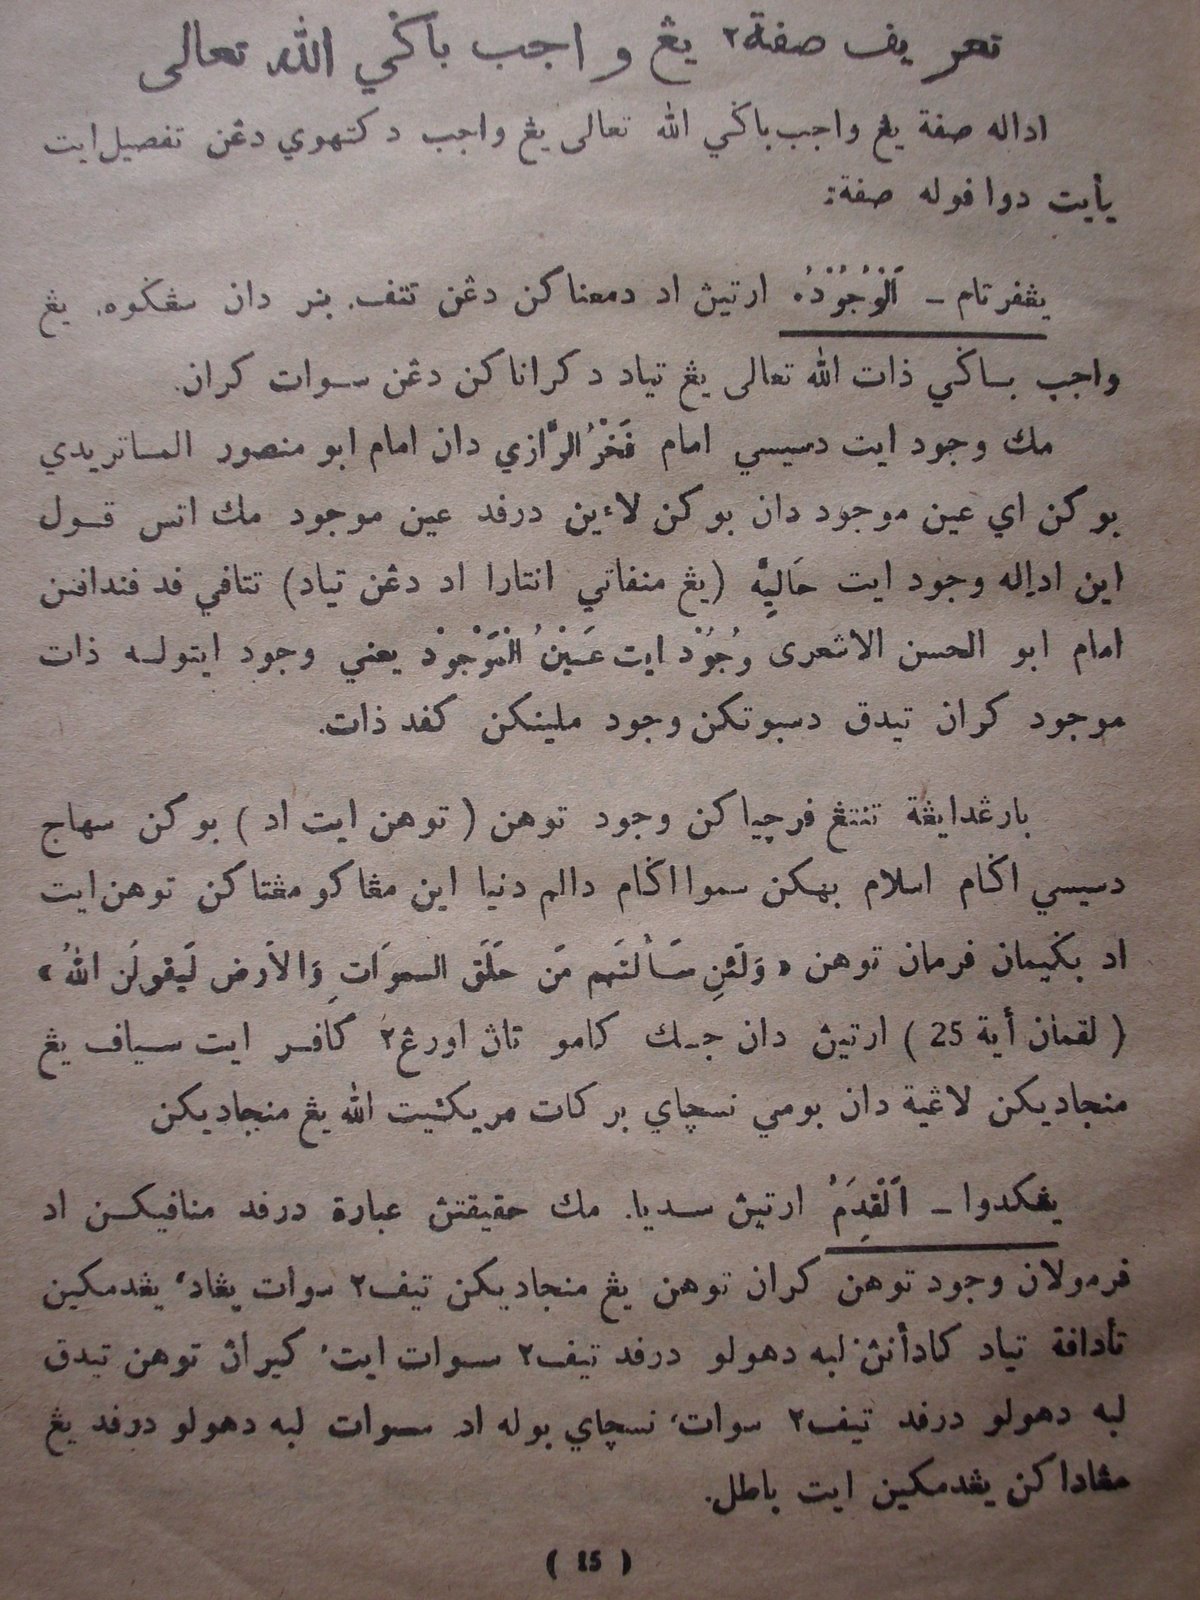 تعريف صفة٢ يڠ واجب باݢي الله تعالى
اداله صفة يڠ واجب باݢي الله تعالى يڠ واجب دكتهوي دڠن تفصيل ايت
يأيت دوا ڤوله صفة:
يڠڤرتام – اَلْوُجُوْدُ. ارتيڽ اد دمعناكن دڠن تتڤ. بنر دان سڠݢوه. يڠ
واجب باݢي ذات الله تعالى يڠ تياد دكراناكن دڠن سوات كران.
مك وجود ايت دسيسي امام فَخْرُ الرَّازي دان امام ابو منصور الماتريدي
بوكن اي عين موجود دان بوكن لاءين درفد عين موجود مك اتس قول
اين اداله وجود ايت حَالِيَّه (يڠ منفاتي انتارا اد دڠن تياد) تتافي فد فندافتن
امام ابو الحسن الاشعرى وُجُوْد ايت عَيْنُ الْمَوْجُوْد يعني وجود ايتوله ذات
موجود كران تيدق دسبوتكن وجود ملينكن كفد ذات.
بارڠدايڠة تنتڠ فرچياكن وجود توهن ( توهن ايت اد ) بوكن سهاج
دسيسي اݢام اسلام بهكن سموا اݢام دالم دنيا اين مڠاكو مڠتاكن توهن ايت
اد بݢيمان فرمان توهن « وَلَئنِ سَأَلتَهم مَن خَلَق السمَوَاتِ وَالاَرض لَيقولَن اللهُ »
( لقمان أية 25 ) ارتيڽ دان جك كامو تاڽ اورڠ٢ كافر ايت سياف يڠ
منجاديكن لاڠية دان بومي نسچاي بركات مريكئيت الله يڠ منجاديكن
يڠكدوا – اَلْقِدَمُ ارتيڽ سديا. مك حقيقتڽ عبارة درفد منافيكن اد
فرمولان وجود توهن كران توهن يڠ منجاديكن تيف٢ سوات يڠاد، يڠدمكين
تأدافة تياد كادأنڽ لبه دهولو درفد تيف٢ سوات ايت، كيراڽ توهن تيدق
لبه دهولو درفد تيف٢ سوات، نسچاي بوله اد سوات لبه دهولو درفد يڠ
مڠاداكن يڠدمكين ايت باطل.
( 15 )